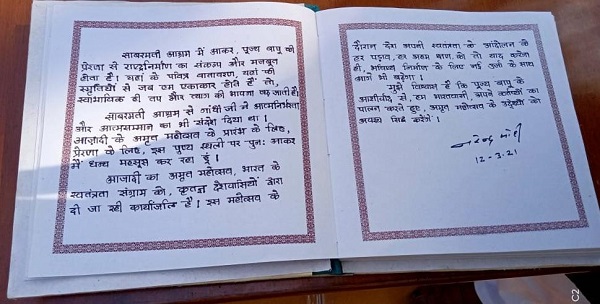 साबरमती आश्रम में आकर, पूज्य बापू की
प्रेरणा से राष्ट्रनिर्माण का संकल्प और मजबूत
होता है। यहां के पवित्र वातावरण, यहां की
स्मृतियों से जब हम एकाकार होते हैं तो,
स्वाभाविक ही तप और त्याग की भावना बढ़ जाती है।
साबरमती आश्रम से गांधी जी ने आत्मनिर्भरता
और आत्मसम्मान का भी संदेश दिया था।
आज़ादी के अमृत महोत्सव के प्रारंभ के लिए,
प्रेरणा के लिए, इस पुण्य स्थली पर पुनः आकर
मैं धन्य महसूस कर रहा हूं।
आजादी का अमृत महोत्सव, भारत के
स्वतंत्रता संग्राम को, कृतज्ञ देशवासियों द्वारा
दी जा रही कार्यांजलि है। इस महोत्सव के
दौरान देश अपनी स्वतंत्रता के आंदोलन के
हर पड़ाव, हर अहम क्षण को तो याद करेगा
ही, भविष्य निर्माण के लिए नई ऊर्जा के साथ
आगे भी बढ़ेगा।
मुझे विश्वास है कि पूज्य बापू के
आशीर्वाद से, हम भारतवासी, अपने कर्तव्यों का
पालन करते हुए, अमृत महोत्सव के उद्देश्यों को
अवश्य सिद्ध करेंगे।
नरेन्द्र मोदी
12-3-21
C2